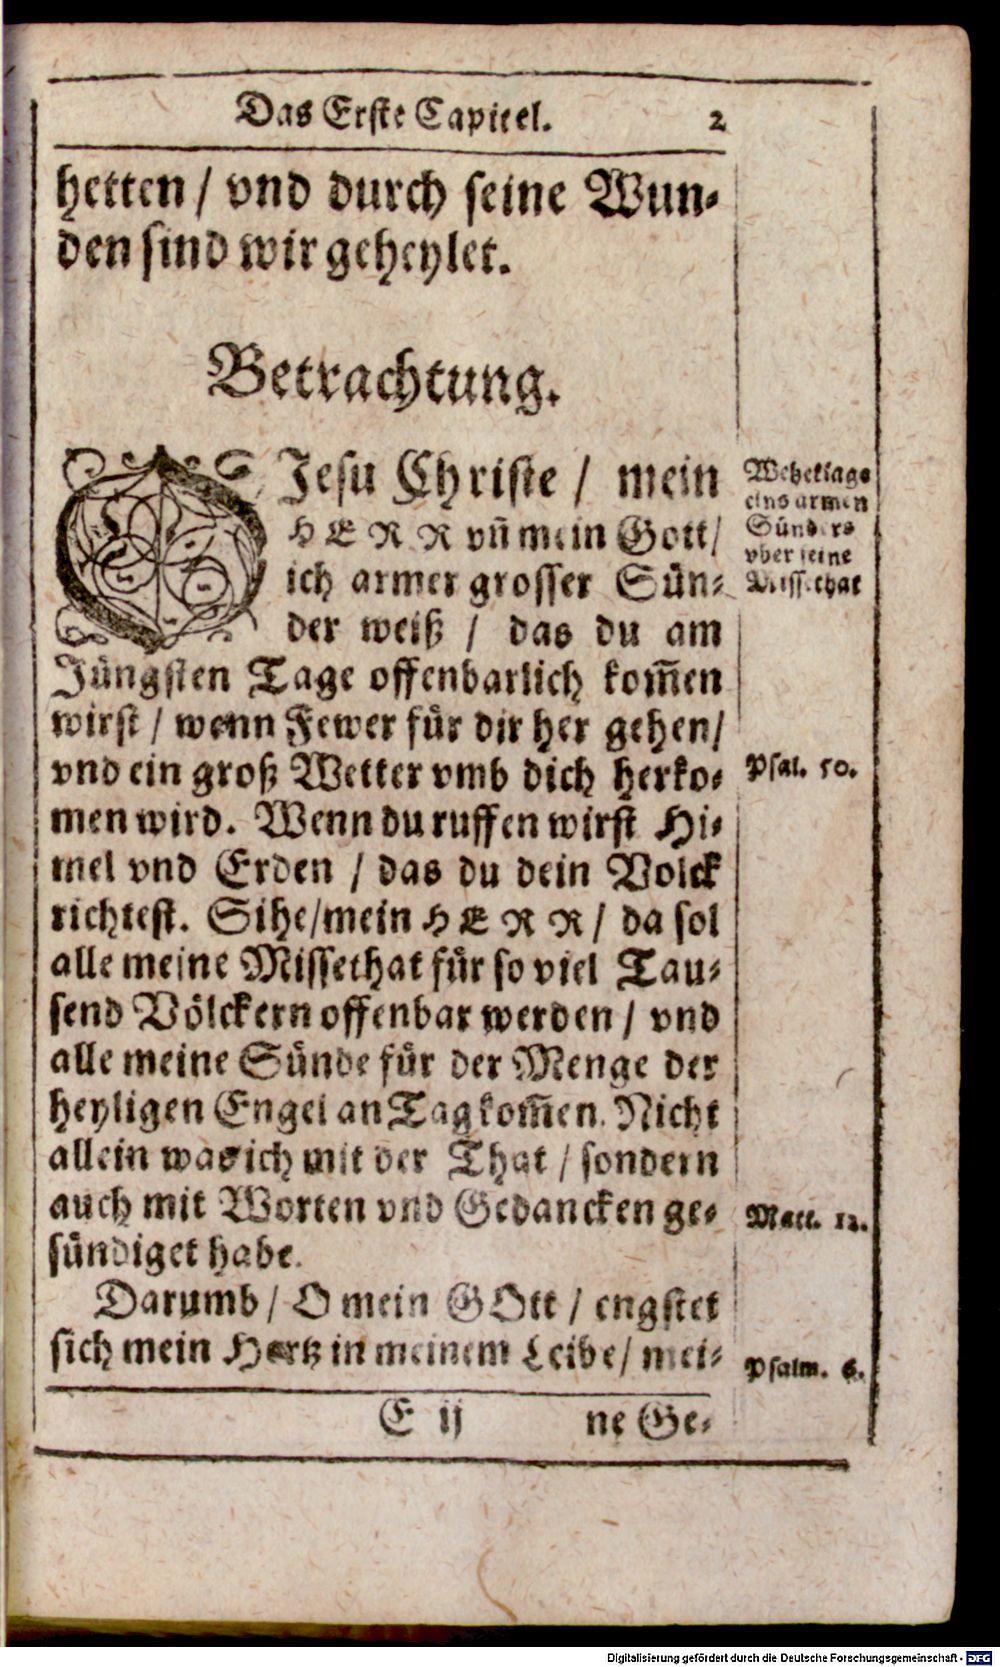 Das Erste Capitel. 2
hetten / vnd durch seine Wun-
den sind wir geheylet.
Betrachtung.
O Jesu Christe / mein
HERR vn̄ mein Gott /
ich armer grosser Sün-
der weiß / das du am
Jüngsten Tage offenbarlich kom̄en
wirst / wenn Fewer für dir her gehen /
vnd ein groß Wetter vmb dich herko-
men wird. Wenn du ruffen wirst Hi-
mel vnd Erden / das du dein Volck
richtest. Sihe / mein HERR / da sol
alle meine Missethat für so viel Tau-
send Völckern offenbar werden / vnd
alle meine Sünde für der Menge der
heyligen Engel an Tag kom̄en. Nicht
allein was ich mit der That / sondern
auch mit Worten vnd Gedancken ge-
sündiget habe.
Darumb / O mein GOtt / engstet
sich mein Hertz in meinem Leibe / mei-
E ij ne Ge-
Weheklage
eins armen
Sünders
vber seine
Missethat
Psal. 50.
Matt. 12.
Psalm. 6.
Digitalisierung gefördert durch die Deutsche Forschungsgemeinschaft - DFG